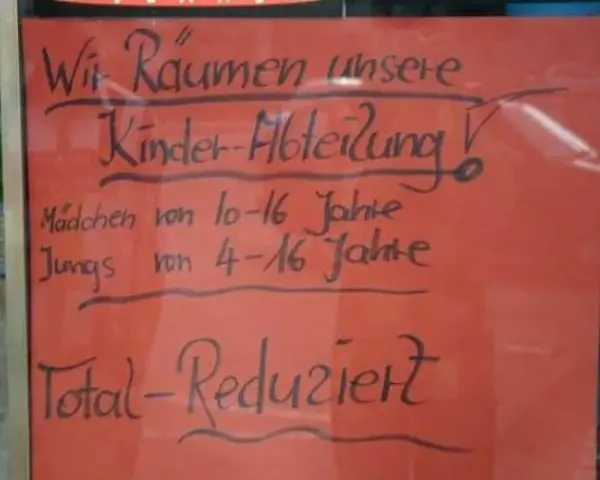 Wir Räumen unsere
Kinder-Abteilung!
Mädchen von 10-16 Jahre
Jungs von 4-16 Jahre
Total-Reduziert